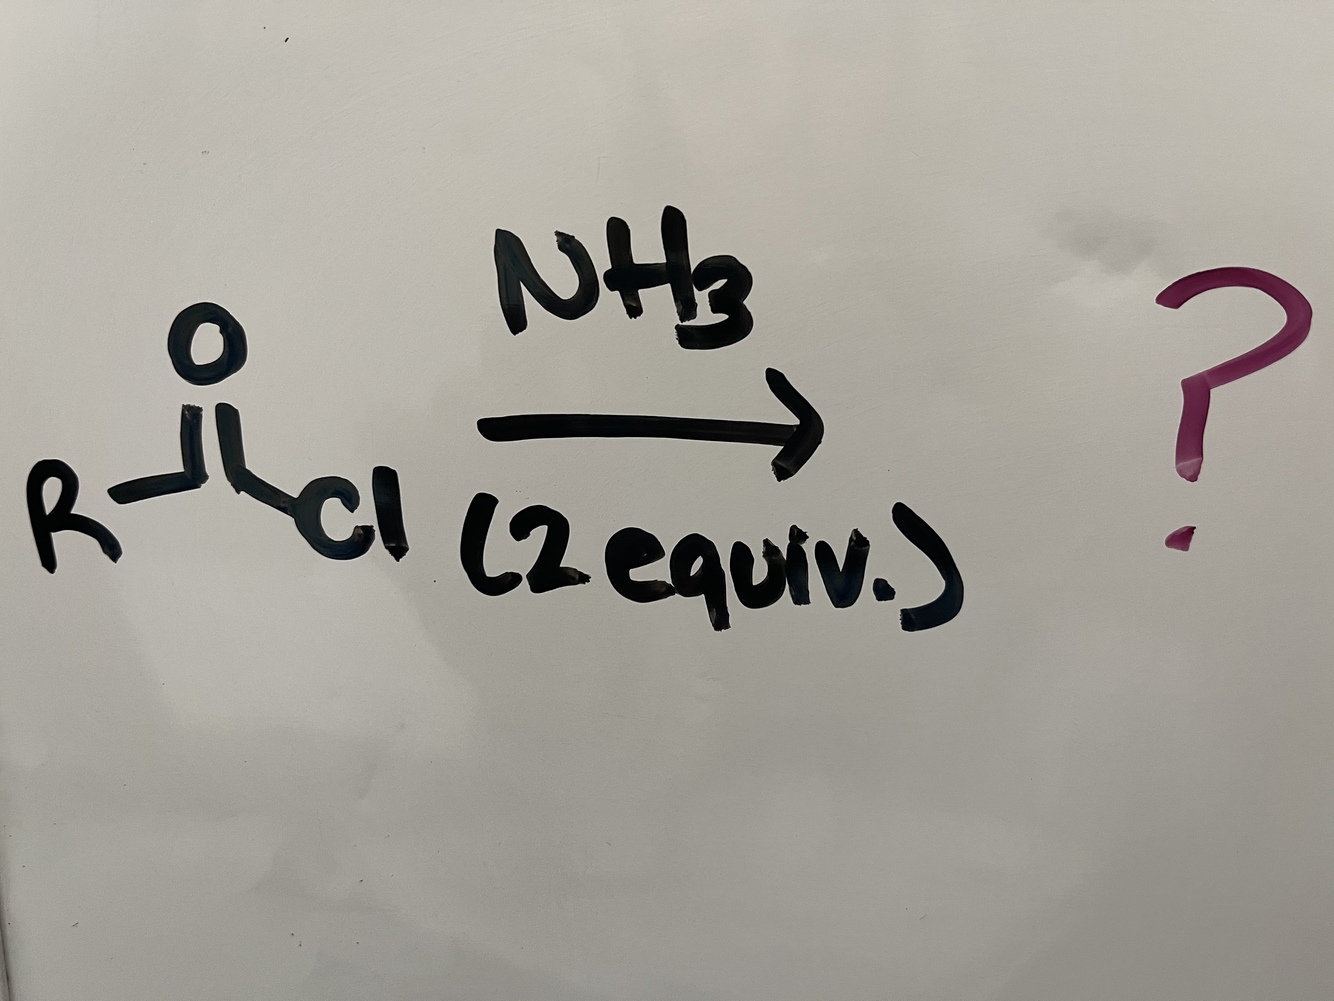 O
R Cl
NH3
(2 equiv.)
?